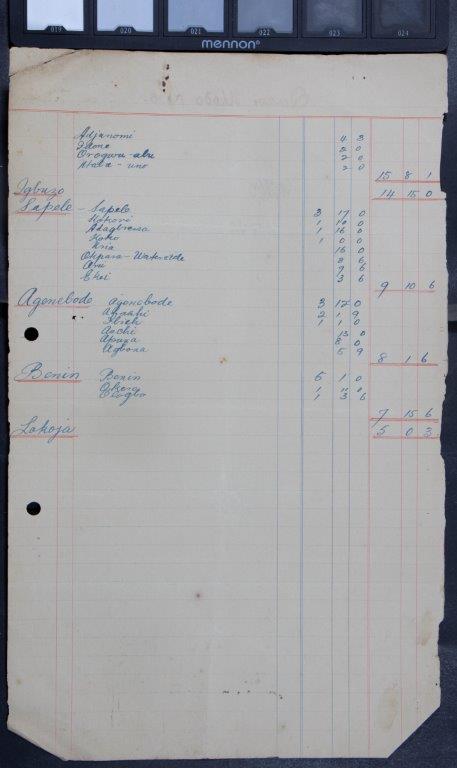 019 020 021 022 023 024
mennon
Adjanomi 4 3
2 0
Orogwu-abu 2 0
2 0
15 8 1
Igbuzo 14 15 0
Sapele - Sapele 3 17 0
1 10 0
1 16 0
Koko 1 0 0
16 0
Okpara-Waterside 8 6
9 6
3 6
9 10 6
Agenebode Agenebode 3 17 0
2 1 9
1 1 0
Auchi 13 0
8 0
Agbona 5 9
8 1 6
Benin Benin 5 1 0
1
1 3 6
7 15 6
Lokoja 5 0 3